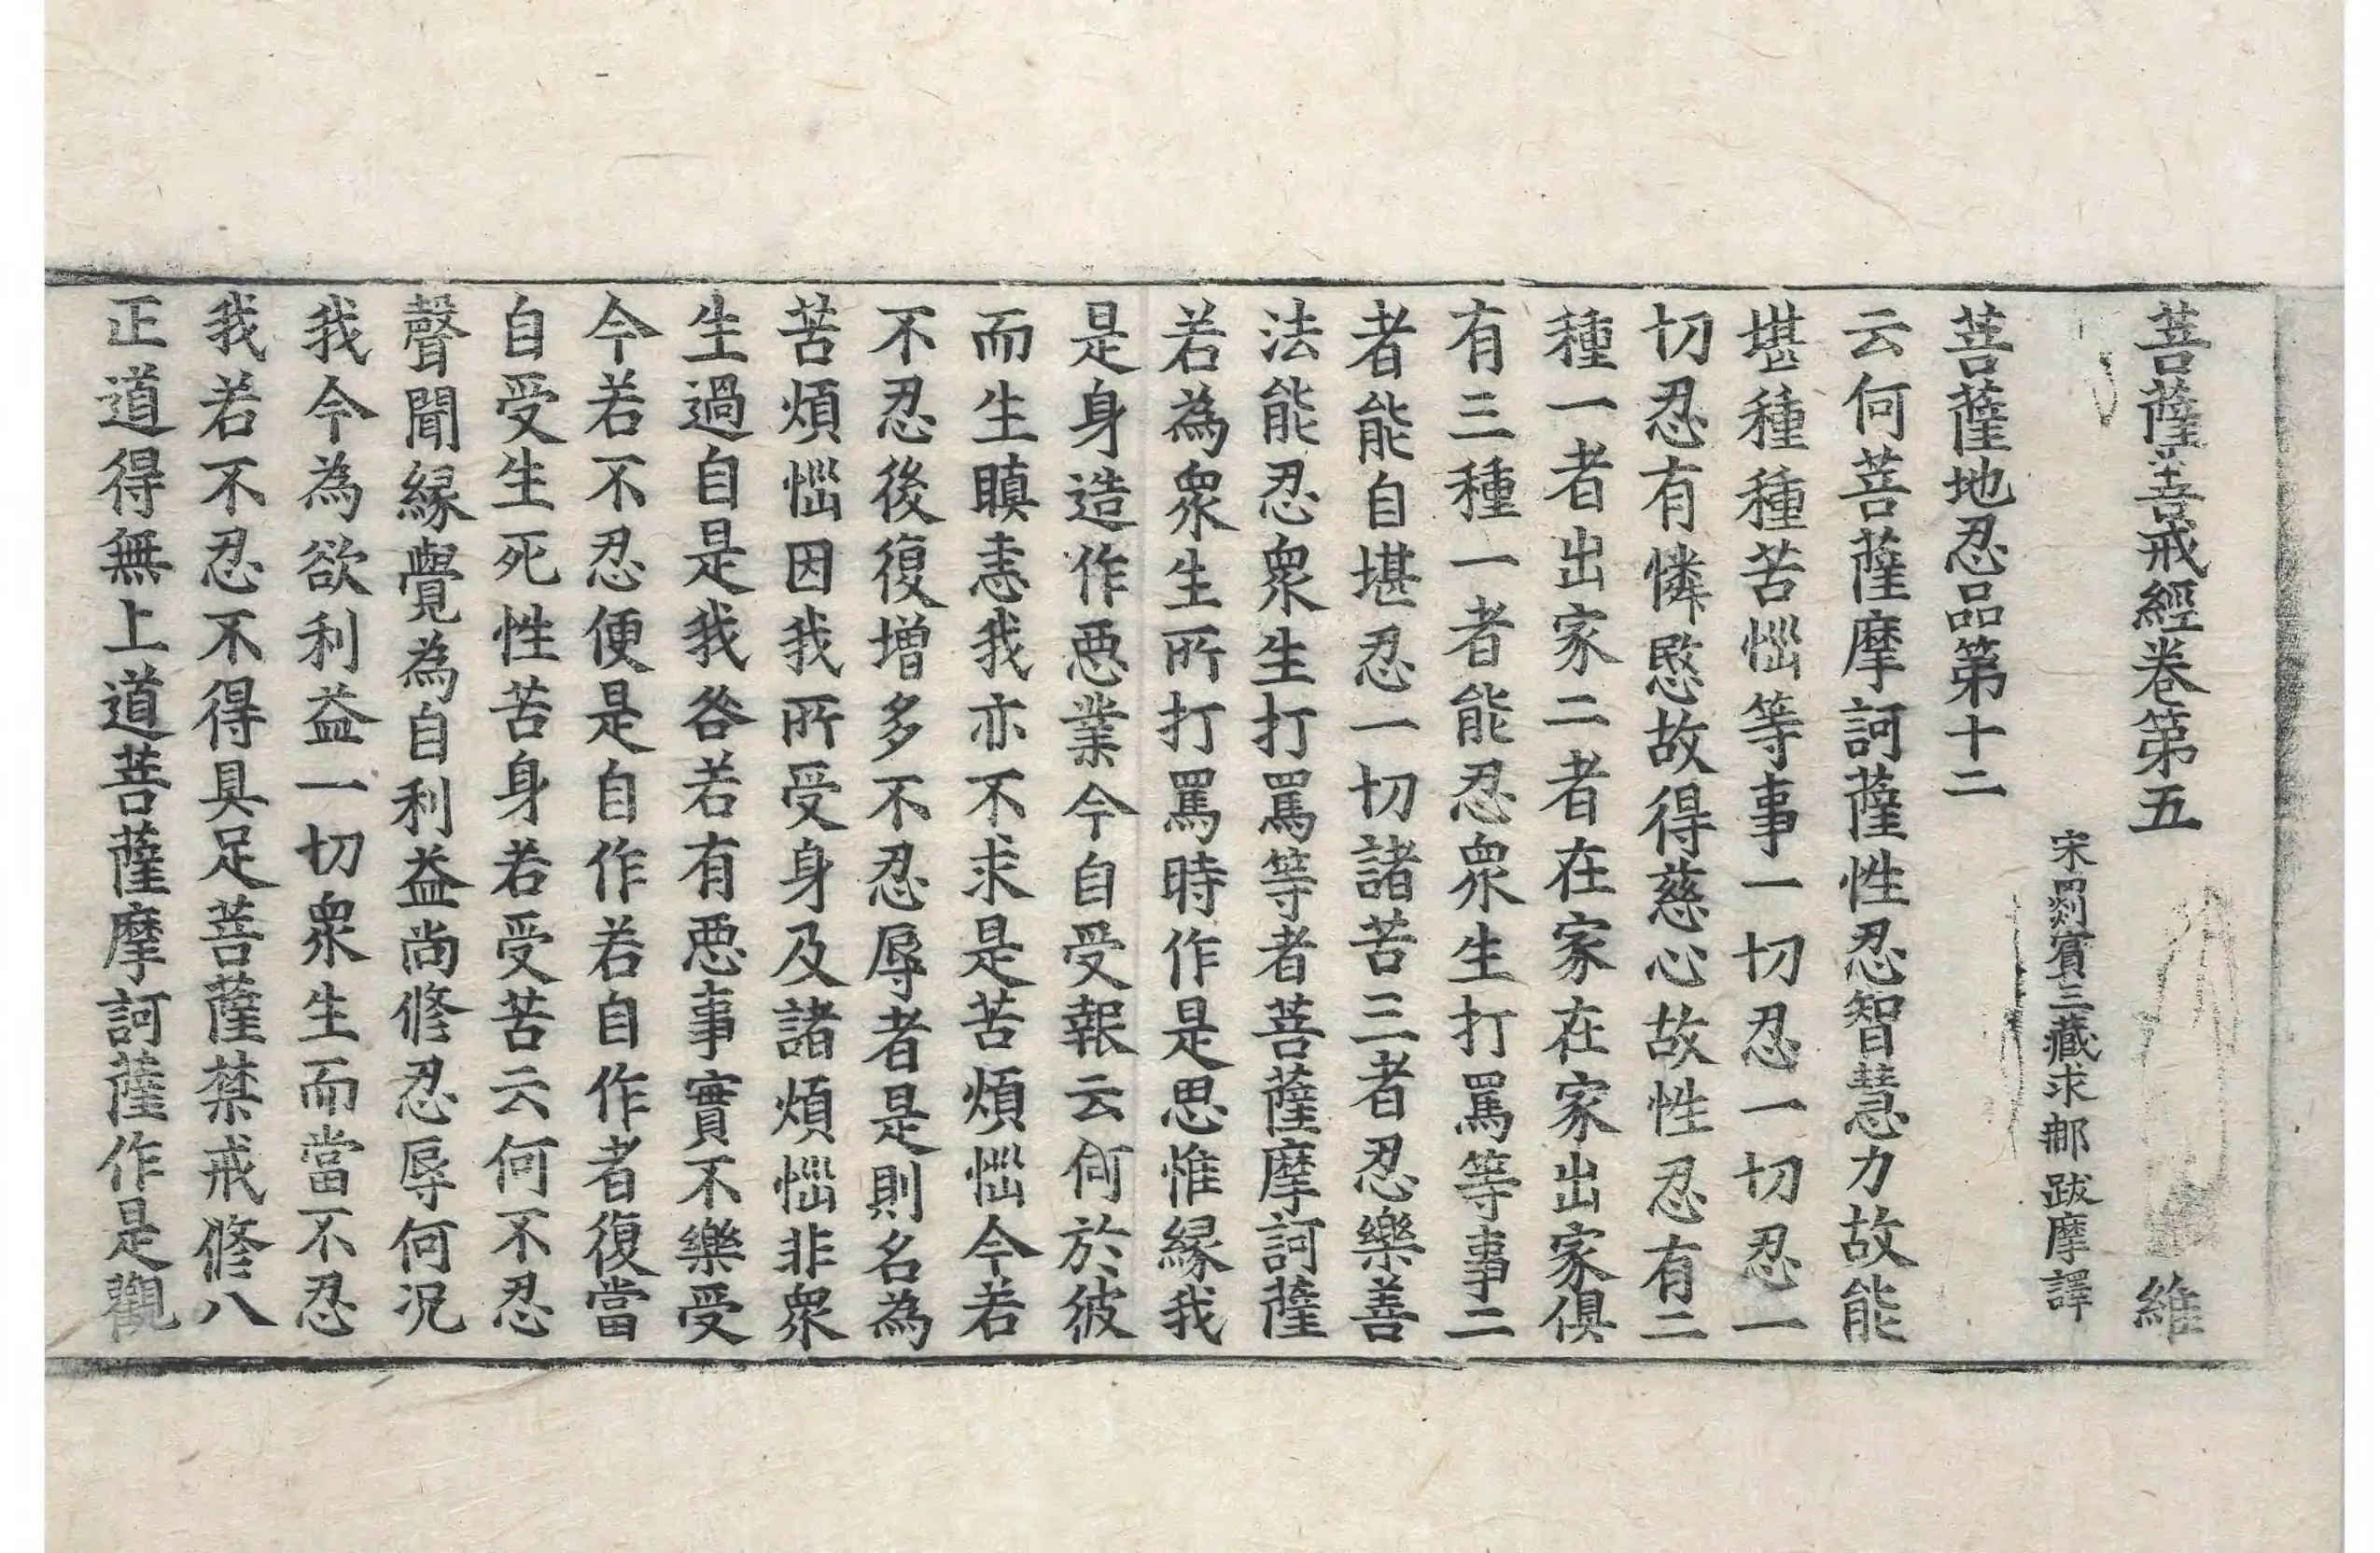 菩薩善戒經卷第五 維
宋罽賓三藏求那跋摩譯
菩薩地忍品第十二
云何菩薩摩訶薩性忍智慧力故能
堪種種苦惱等事一切忍一切忍一
切忍有憐愍故得慈心故性忍有二
種一者出家二者在家在家出家俱
有三種一者能忍衆生打罵等事二
者能自堪忍一切諸苦三者忍樂善
法能忍衆生打罵等者菩薩摩訶薩
若為衆生所打罵時作是思惟緣我
是身造作惡業今自受報云何於彼
而生瞋恚我亦不求是苦煩惱今若
不忍後復增多不忍辱者是則名為
苦煩惱因我所受身及諸煩惱非衆
生過自是我咎若有惡事實不樂受
今若不忍便是自作若自作者復當
自受生死性苦身若受苦云何不忍
聲聞緣覺為自利益尚修忍辱何況
我今為欲利益一切衆生而當不忍
我若不忍不得具足菩薩禁戒修八
正道得無上道菩薩摩訶薩作是觀